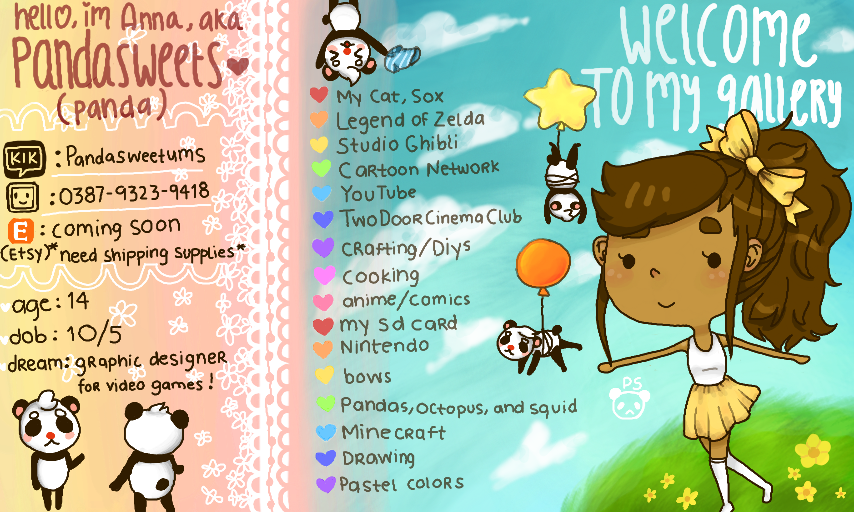 hello, im Anna, aka
Pandasweets
(panda)
KIK : Pandasweetums
: 0387-9323-9418
E : coming soon
(Etsy) *need shipping supplies*
age: 14
dob: 10/5
dream: graphic designer
for video games!
My Cat, Sox
Legend of Zelda
Studio Ghibli
Cartoon Network
YouTube
Two Door Cinema Club
Crafting/Diys
Cooking
anime/comics
my sd card
Nintendo
bows
Pandas, octopus, and squid
Minecraft
Drawing
Pastel colors
Welcome
To my gallery
PS